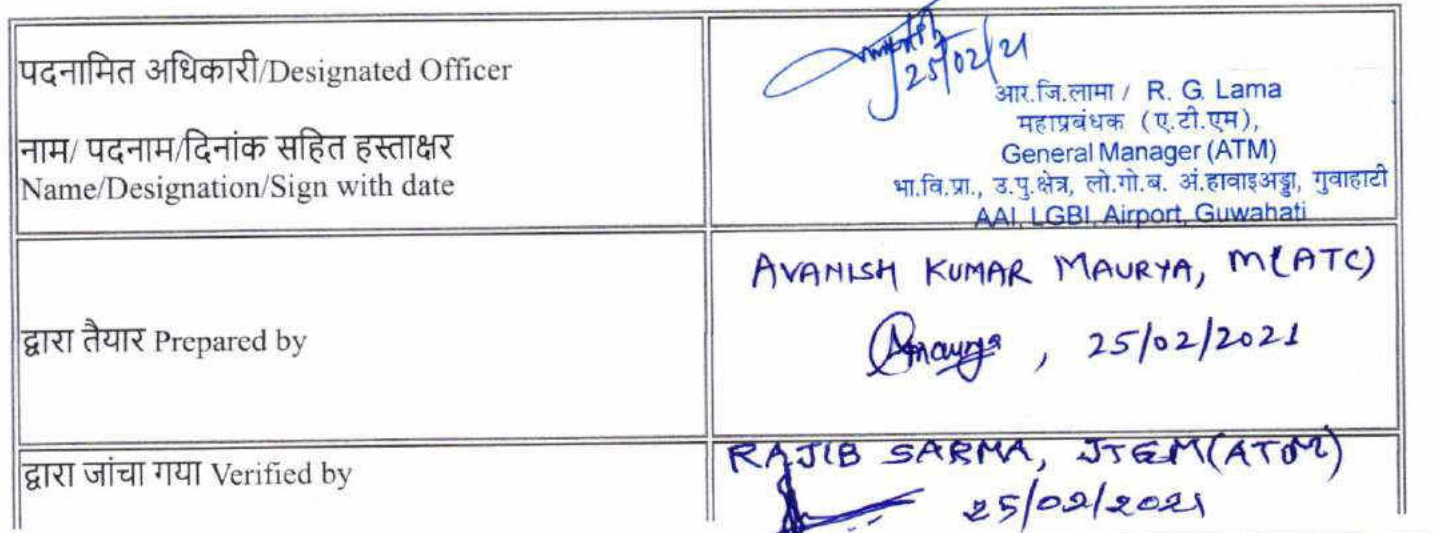 पदनामित अधिकारी/Designated Officer
नाम/ पदनाम/दिनांक सहित हस्ताक्षर
Name/Designation/Sign with date
25/02/21
आर.जि.लामा / R. G. Lama
महाप्रबंधक (ए.टी.एम),
General Manager (ATM)
भा.वि.प्रा., उ.पु.क्षेत्र, लो.गो.ब. अं.हावाइअड्डा, गुवाहाटी
AAI, LGBI, Airport, Guwahati
द्वारा तैयार Prepared by
AVANISH KUMAR MAURYA, M(ATC)
, 25/02/2021
द्वारा जांचा गया Verified by
RAJIB SARMA, JTGM(ATM)
25/02/2021